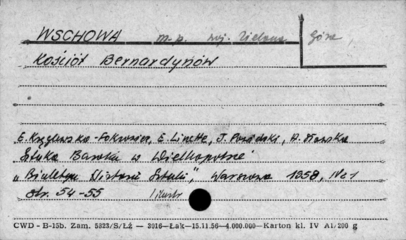 WSCHOWA m-p. woj. Zielona Góra
Kościół Bernardynów
Sztuka Baroku w Wielkopolsce
„Biuletyn Historii Sztuki", Warszawa 1958, Nr 1
str. 54-55 ilustr
CWD - B-15b. Zam. 5823/S/Łź — 2016—Łak—15.11.56—4.000.000—Karton kl. IV A1/200 g